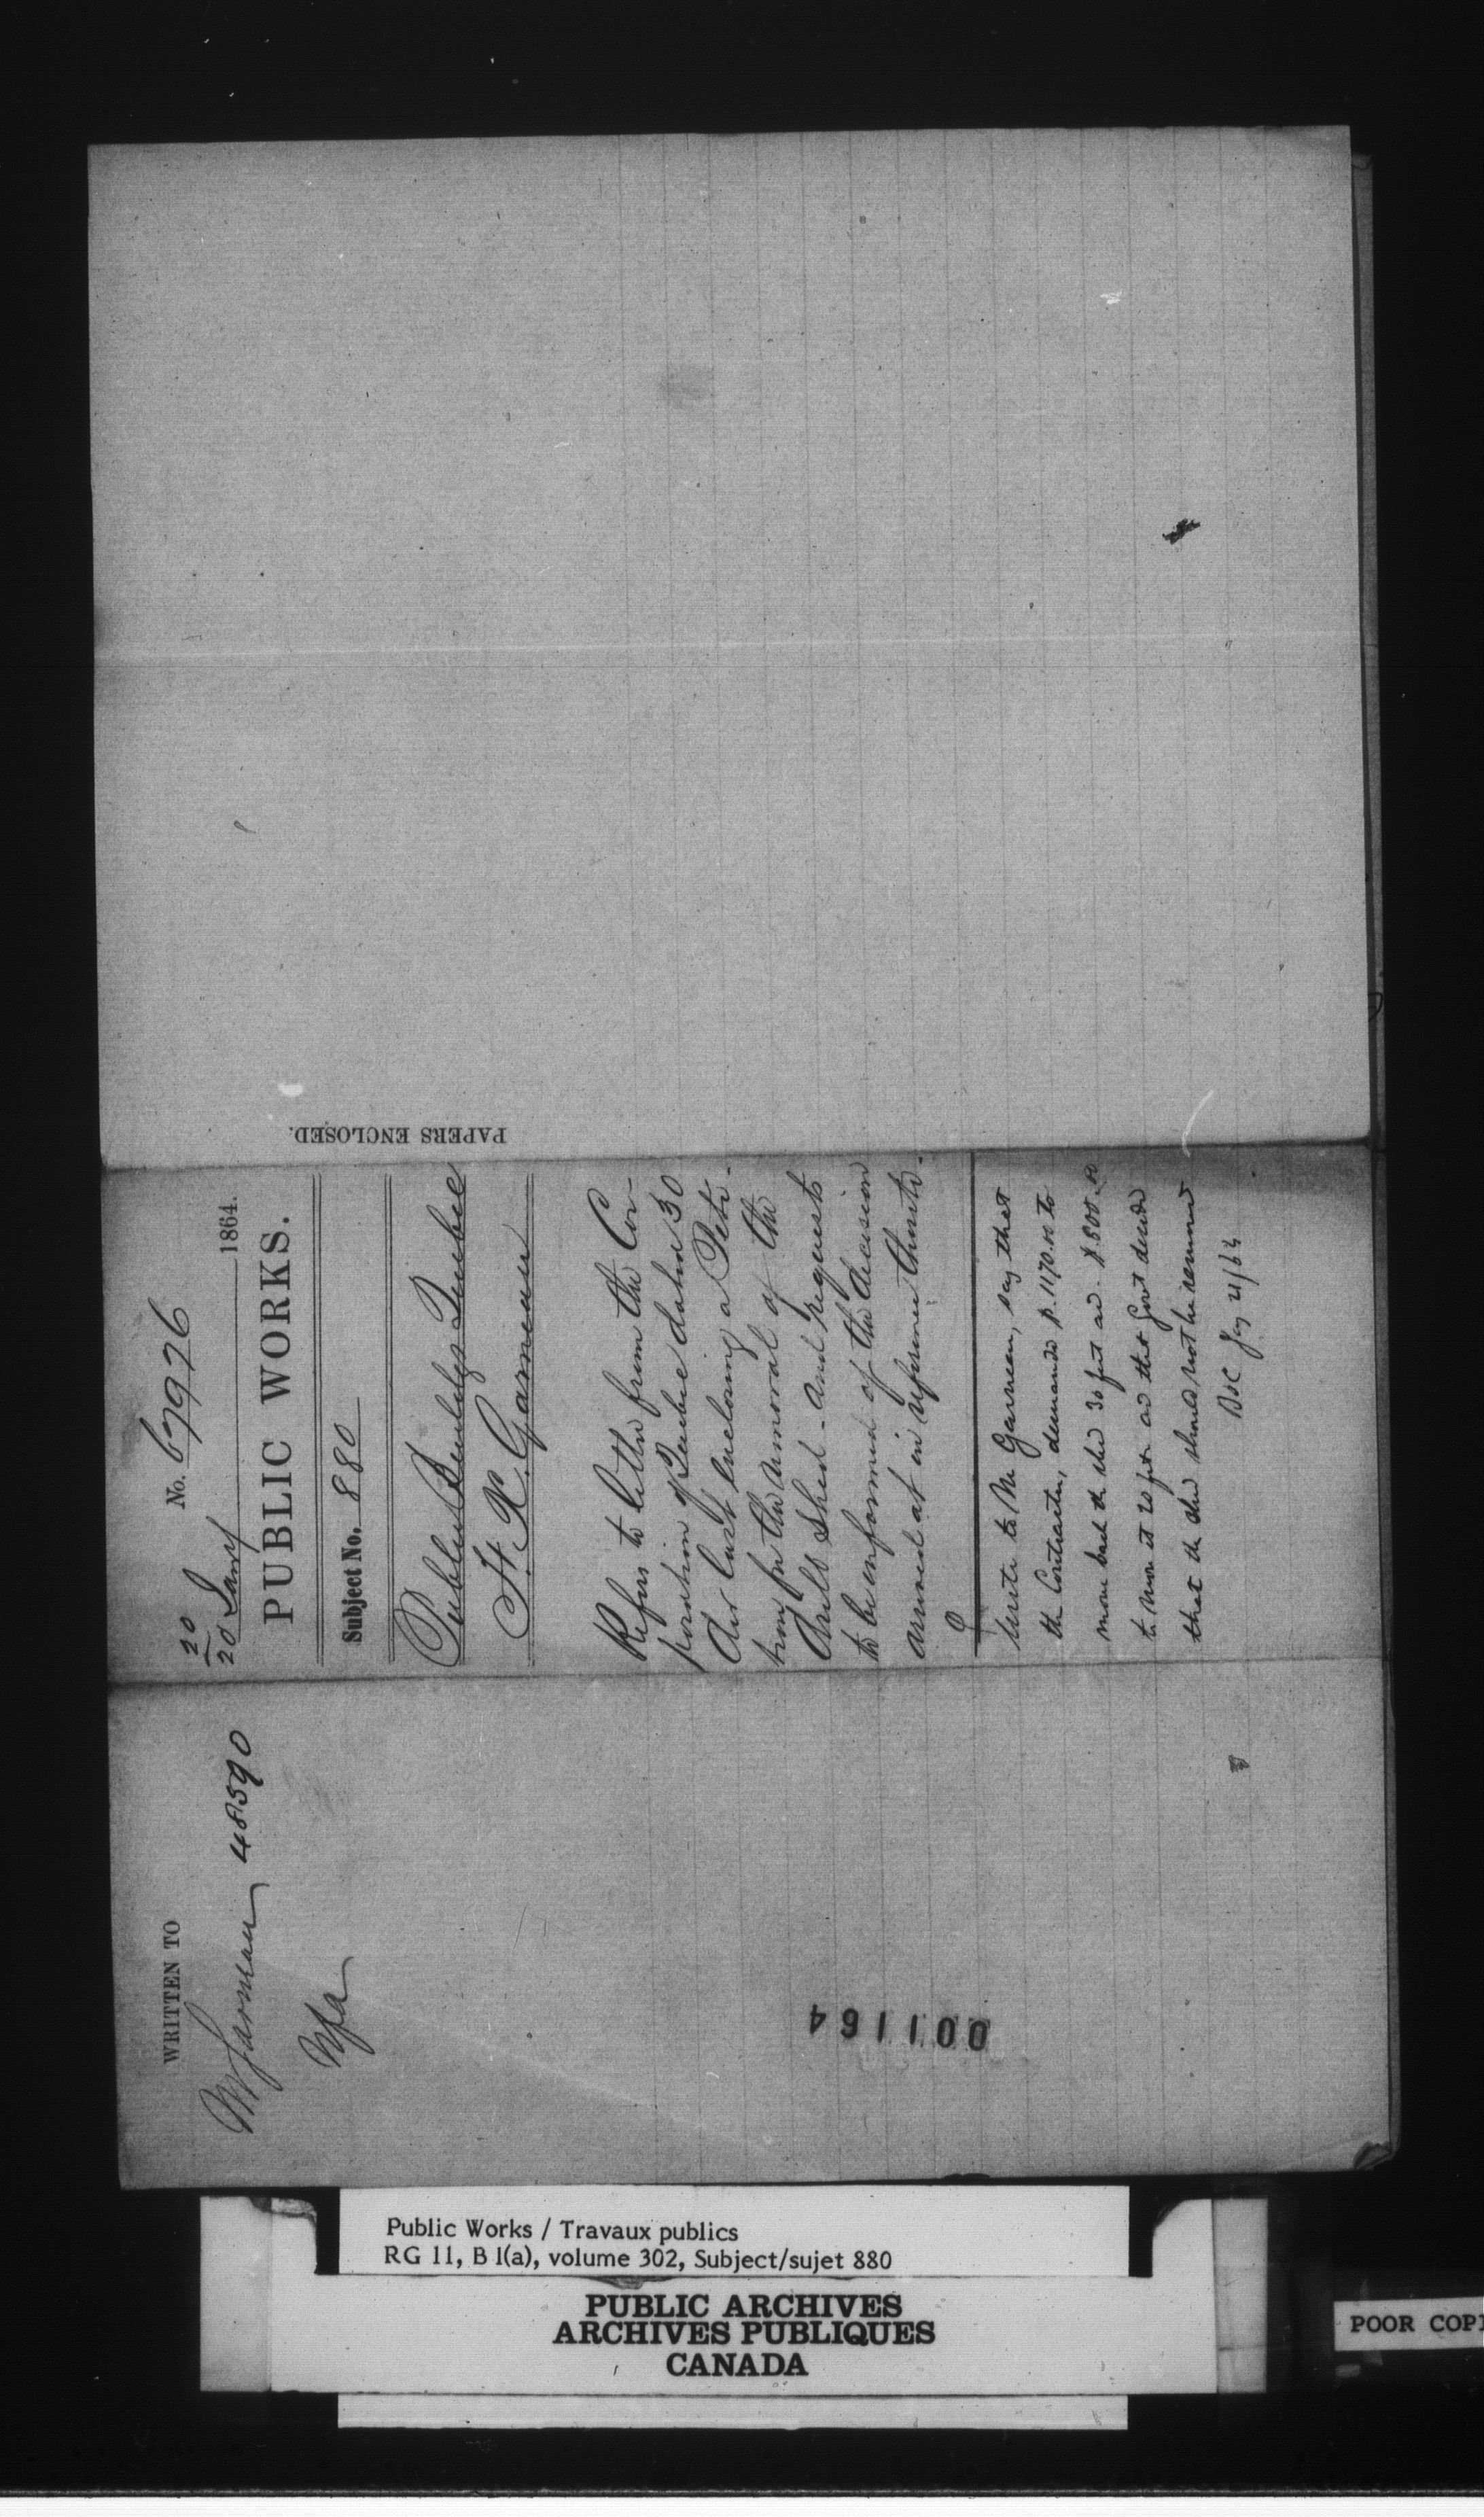 20
20 Jany No. 67976 1864.
PUBLIC WORKS.
Subject No. 880
Public Buildgs Quebec
F. X. Garneau
Refers to letter from the Cor-
poration of Quebec dated 30
last enclosing a Peti-
tion for the removal of the
Shed - and requests
to be informed of the decision
arrived at in reference thereto.
Write to Mr Garneau, say that
the Contractor, demands $.1170.00 to
move back the shed 30 feet and $.800.00
to move it 20 feet and that Govt decided
that the shed should not be removed
Jay 21/64
PAPERS ENCLOSED.
WRITTEN TO
Mr Garneau 48590
001164
Public Works / Travaux publics
RG 11, B 1(a), volume 302, Subject/sujet 880
PUBLIC ARCHIVES
ARCHIVES PUBLIQUES
CANADA
POOR COPI